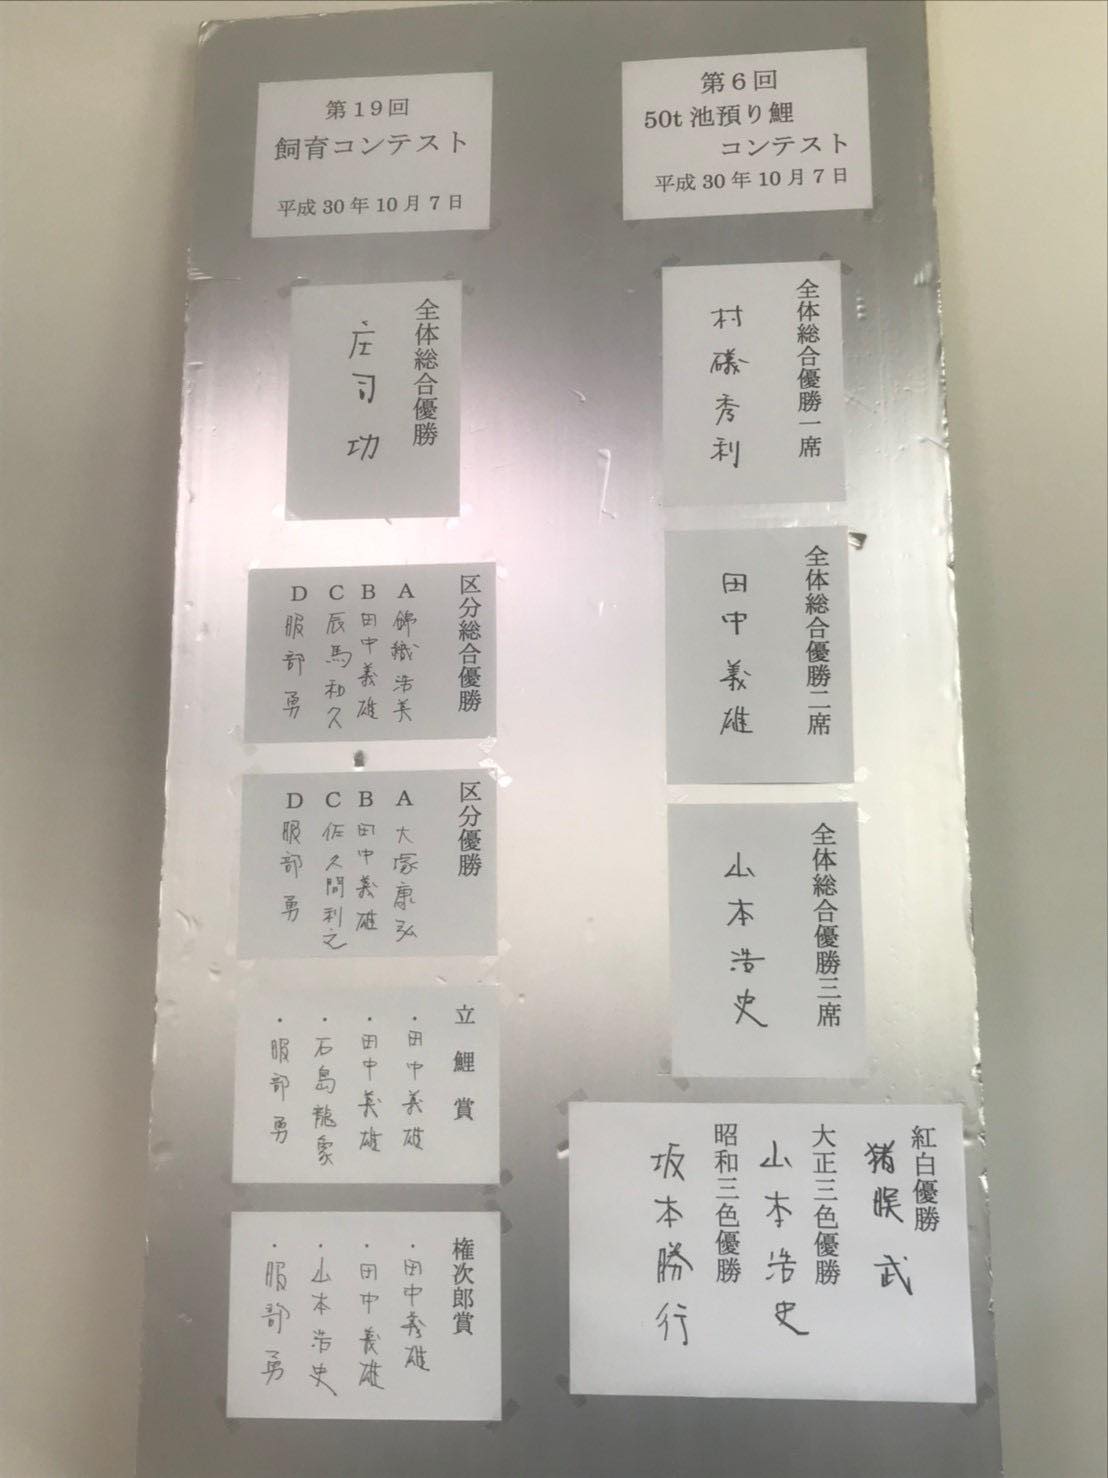 第19回
飼育コンテスト
平成30年10月7日
全体総合優勝
庄司 功
区分総合優勝
A 錦織浩美
B 田中義雄
C 辰馬和久
D 服部 勇
区分優勝
A 大塚康弘
B 田中義雄
C 佐久間利之
D 服部 勇
立鯉賞
・田中義雄
・田中義雄
・石島龍象
・服部 勇
権次郎賞
・田中義雄
・田中義雄
・山本浩史
・服部 勇
第6回
50t池預り鯉
コンテスト
平成30年10月7日
全体総合優勝一席
村磯秀利
全体総合優勝二席
田中義雄
全体総合優勝三席
山本浩史
紅白優勝
猪俣 武
大正三色優勝
山本浩史
昭和三色優勝
坂本勝行